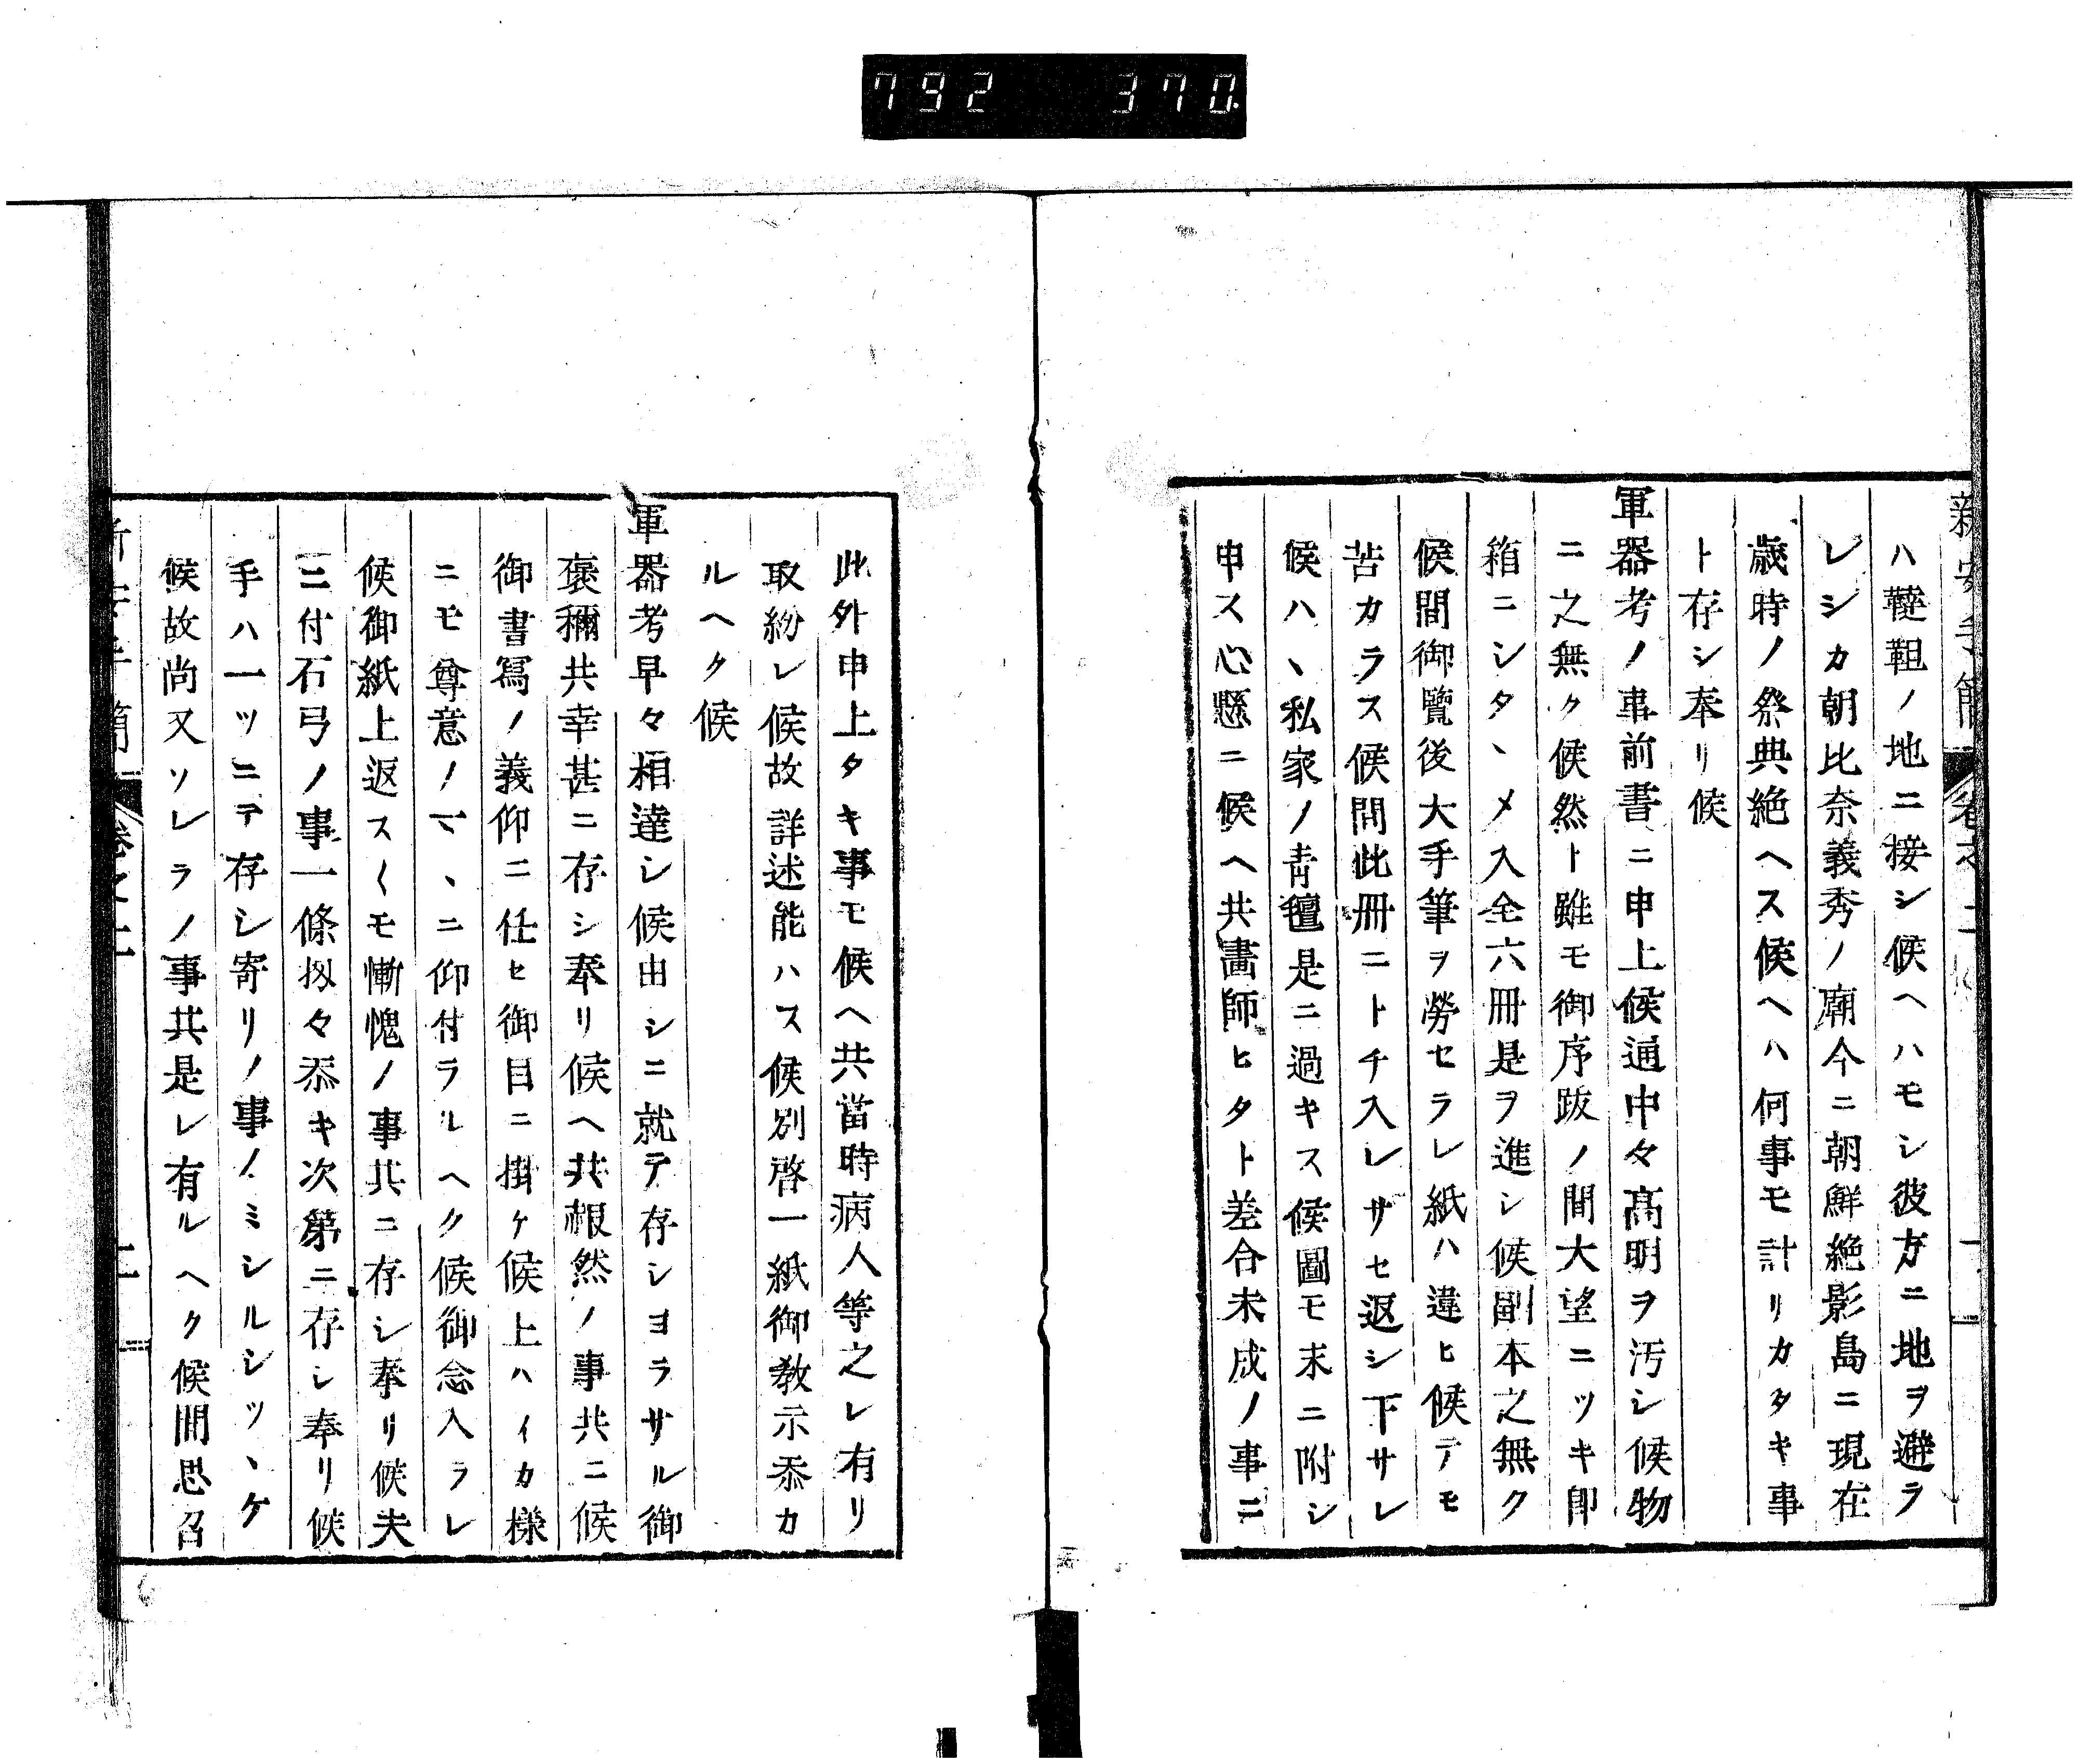 792 370
新安手簡 卷之二
ハ韃靼ノ地ニ接シ候ヘハモシ彼方ニ地ヲ避ラ
レシカ朝比奈義秀ノ廟今ニ朝鮮絶影島ニ現在
歳時ノ祭典絶ヘス候ヘハ何事モ計リカタキ事
ト存シ奉リ候
軍器考ノ事前書ニ申上候通中々高明ヲ汚シ候物
ニ之無ク候然ト雖モ御序跋ノ間大望ニツキ卽
箱ニシタヽメ入全六冊是ヲ進シ候副本之無ク
候間御覽後大手筆ヲ勞セラレ紙ハ違ヒ候テモ
苦カラス候間此冊ニトチ入レサセ返シ下サレ
候ハヽ私家ノ青氊是ニ過キス候圖モ末ニ附シ
申ス心懸ニ候ヘ共畵師ヒタト差合未成ノ事ニ
此外申上タキ事モ候ヘ共當時病人等之レ有リ
取紛レ候故詳述能ハス候別啓一紙御教示忝カ
ルヘク候
軍器考早々相達シ候由シニ就テ存シヨラサル御
褒稱共幸甚ニ存シ奉リ候ヘ共根然ノ事共ニ候
御書寫ノ義仰ニ任ヒ御目ニ掛ケ候上ハイカ様
ニモ尊意ノマヽニ仰付ラルヘク候御念入ラレ
候御紙上返ス〱モ慚愧ノ事共ニ存シ奉リ候夫
ニ付石弓ノ事一條扨々忝キ次第ニ存シ奉リ候
手ハ一ツニテ存シ寄リノ事ノミシルシツヽケ
候故尚又ソレラノ事共是レ有ルヘク候間思召
新安手簡 卷之二 二